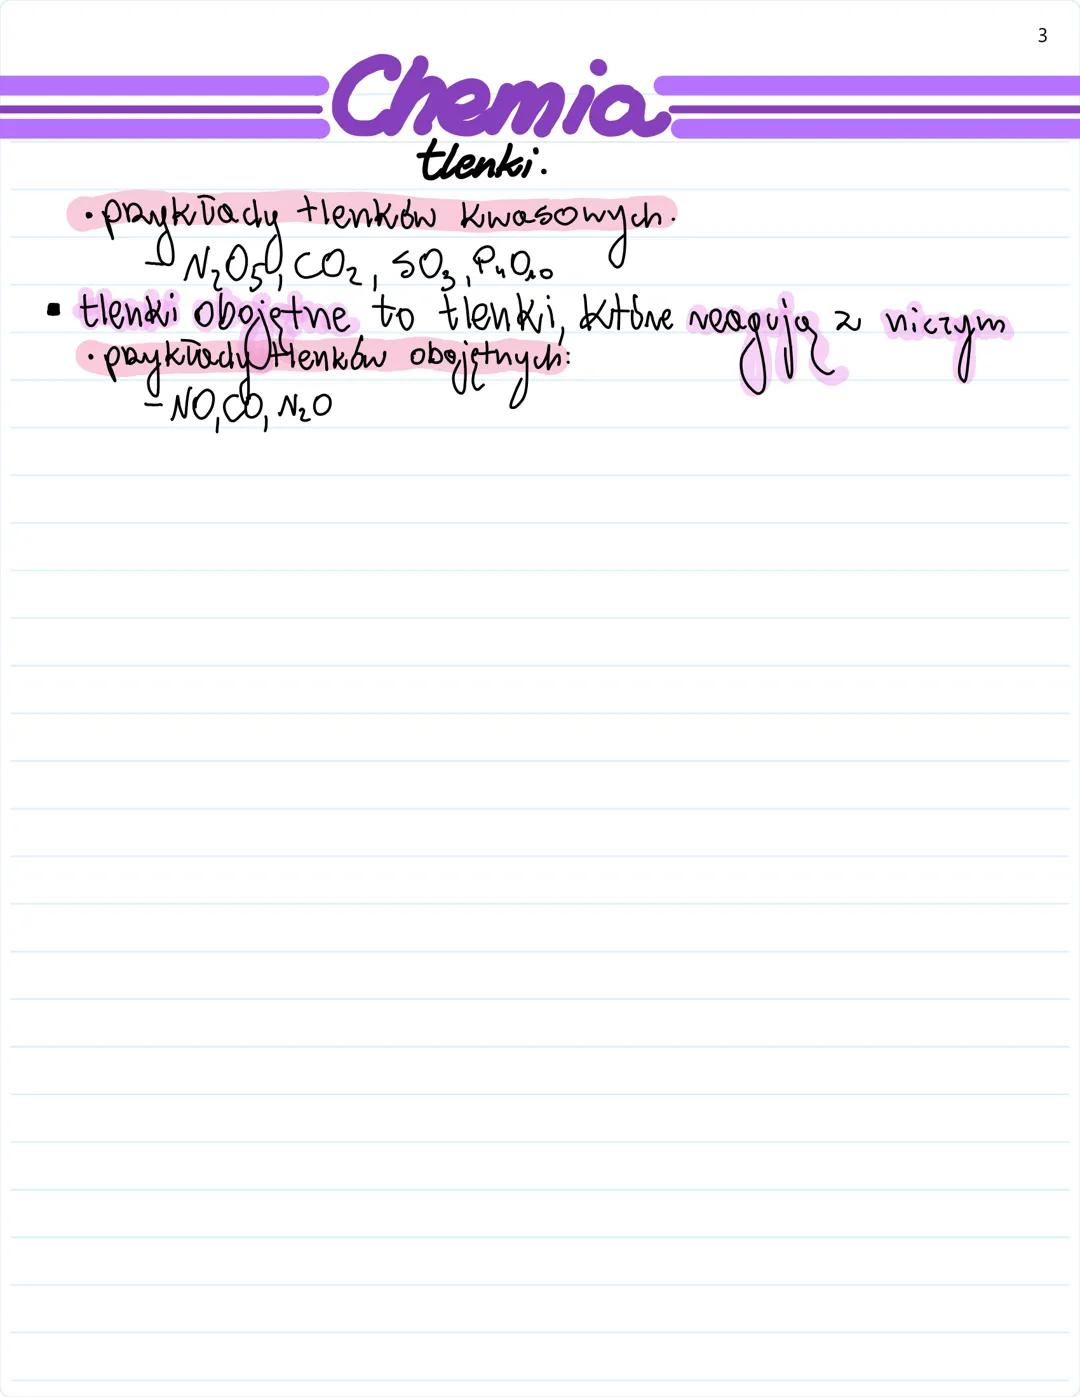 3
Chemia
tlenki:
• przykłady tlenków kwasowych:
- N₂O₅, CO₂, SO₃, P₄O₁₀
▪ tlenki obojętne to tlenki, które reagują z niczym
• przykłady tlenków obojętnych:
- NO, CO, N₂O